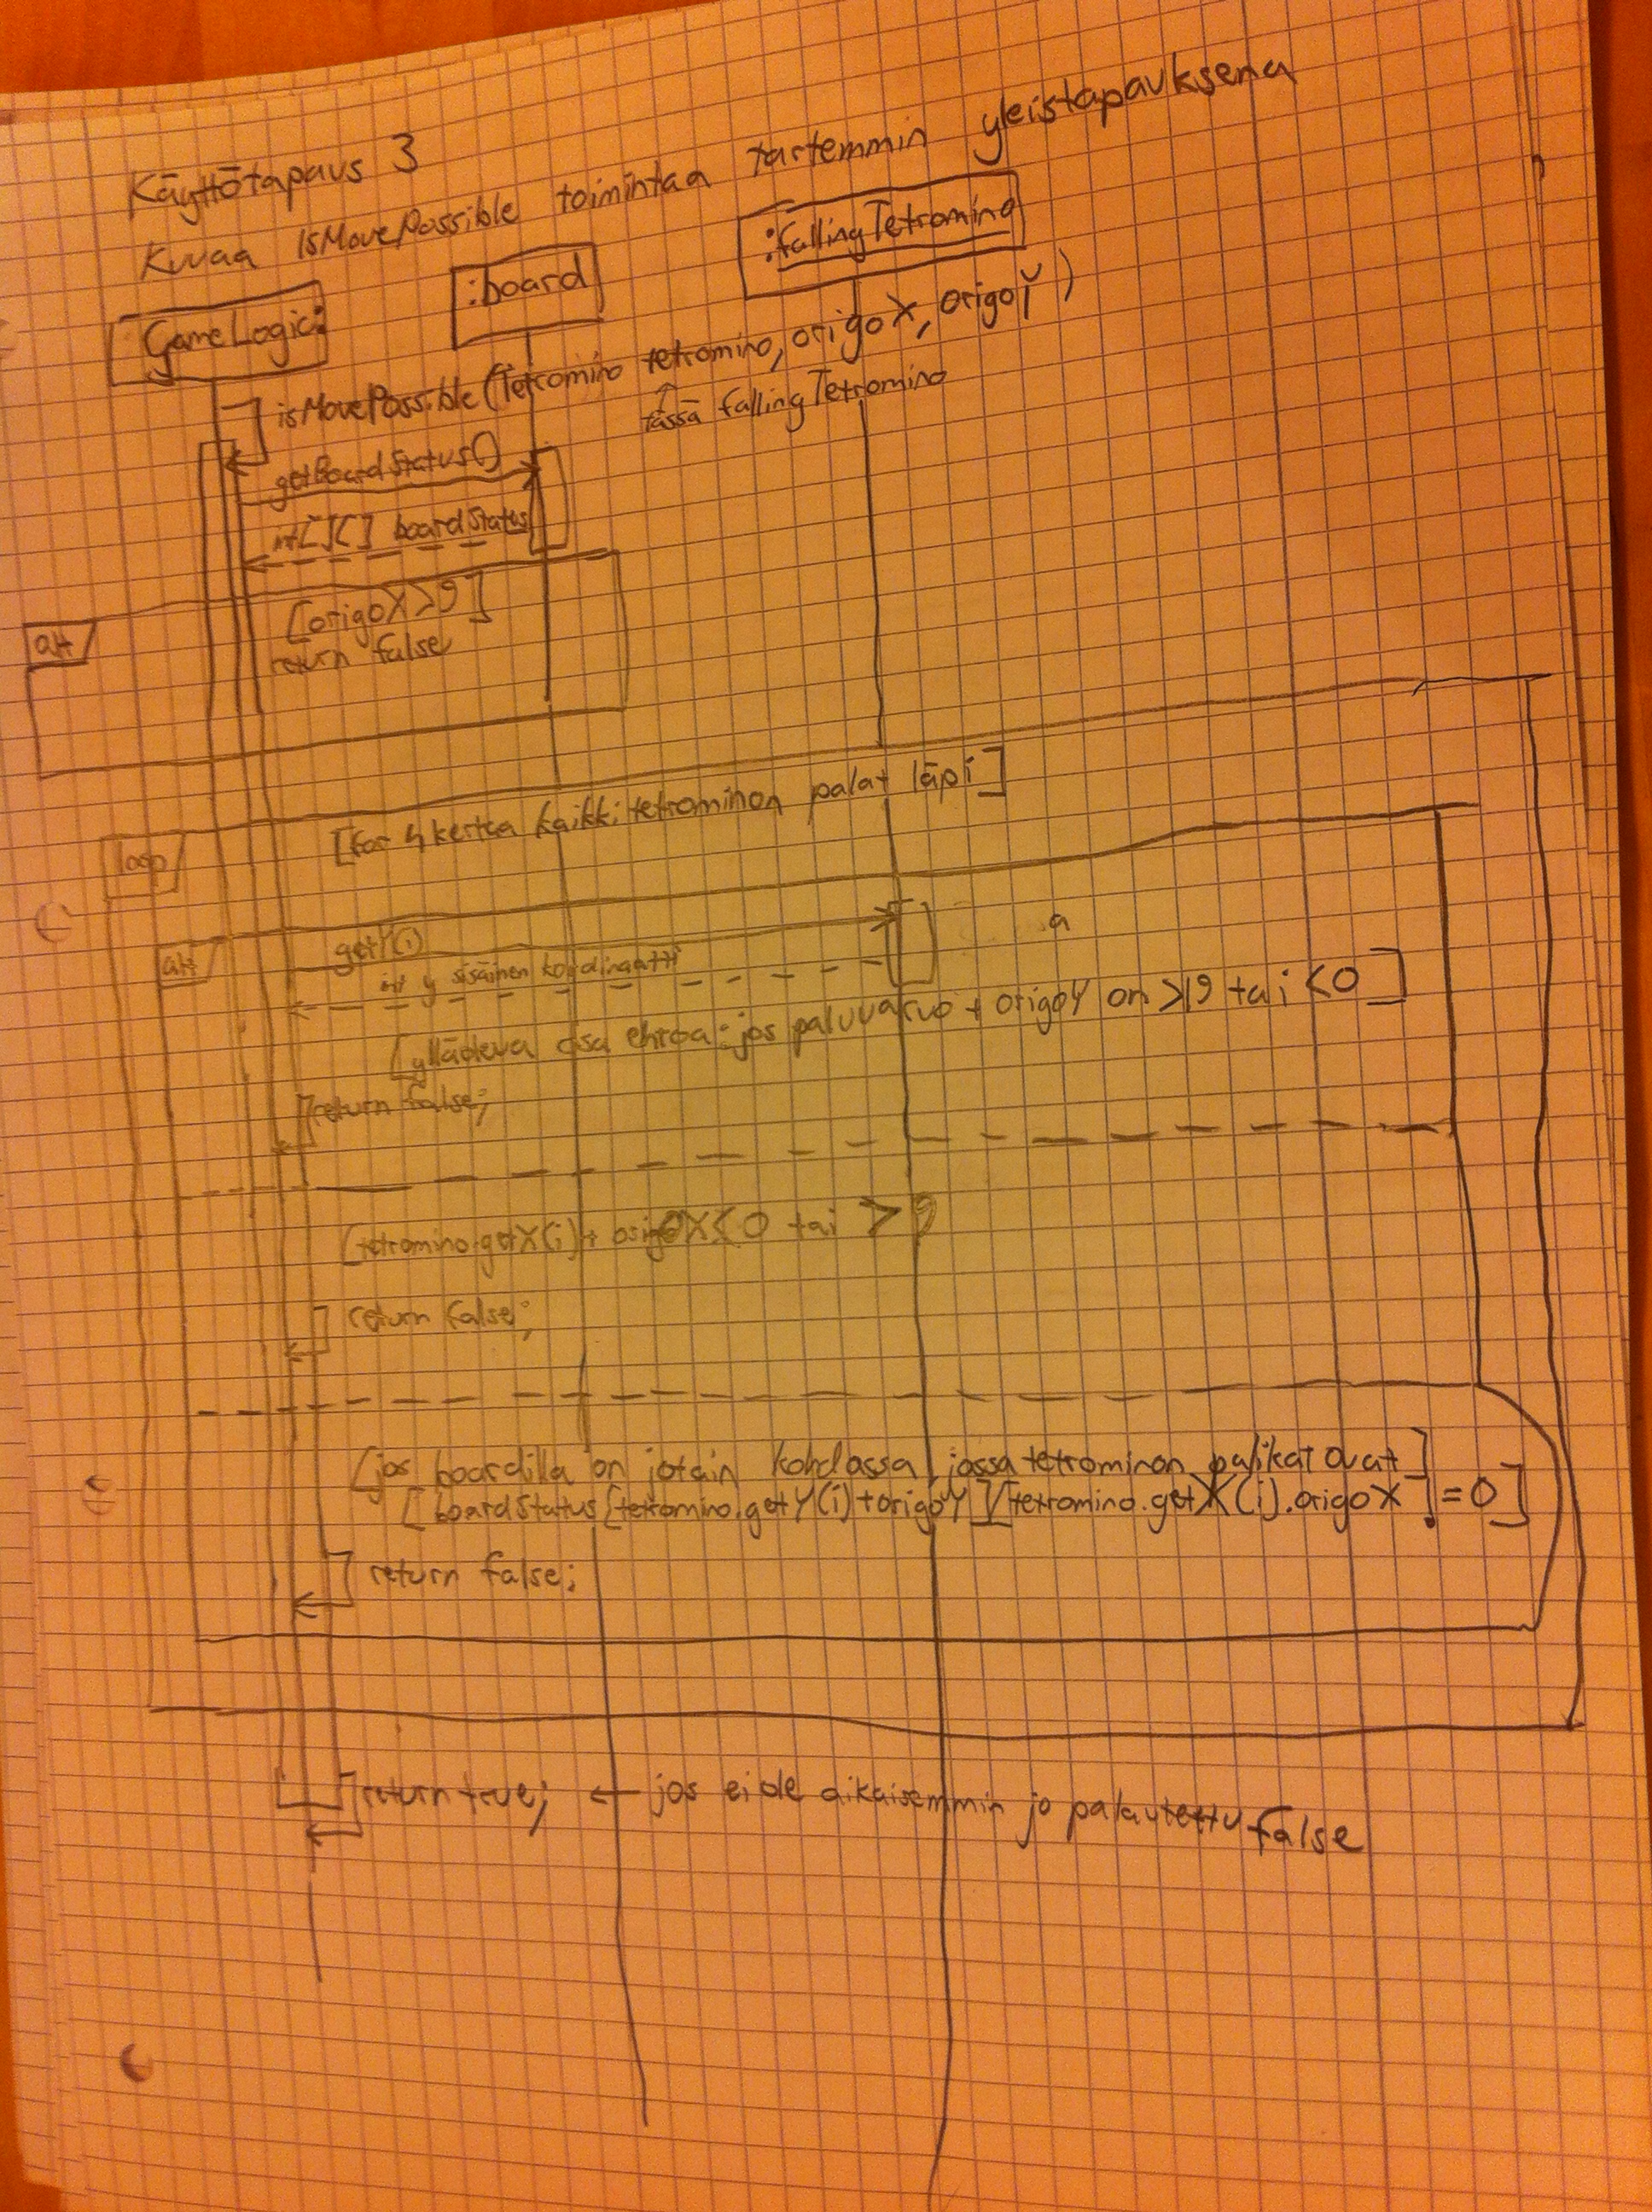 Käyttötapaus 3
Kuvaa isMovePossible toimintaa tartemmin yleistapauksena
GameLogic:
:board
:fallingTetromino
isMovePossible(Tetromino tetromino, origoX, origoY)
↑
tässä fallingTetromino
getBoardStatus()
int[][] boardStatus
alt
[origoX>9]
return false
loop
[for 4 kertaa kaikki tetrominon palat läpi]
alt
getY(i)
a
int y sisäinen koordinaatti
[ylläoleva osa ehtoa: jos paluuarvo + origoY on >19 tai <0]
return false;
[tetromino.getX(i)+ origoX<0 tai >9
return false;
[jos boardilla on jotain kohdassa, jossa tetrominon palikat ovat]
[boardStatus[tetromino.getY(i)+origoY][tetromino.getX(i).origoX]!=0]
return false;
return true; ← jos ei ole aikaisemmin jo palautettu false